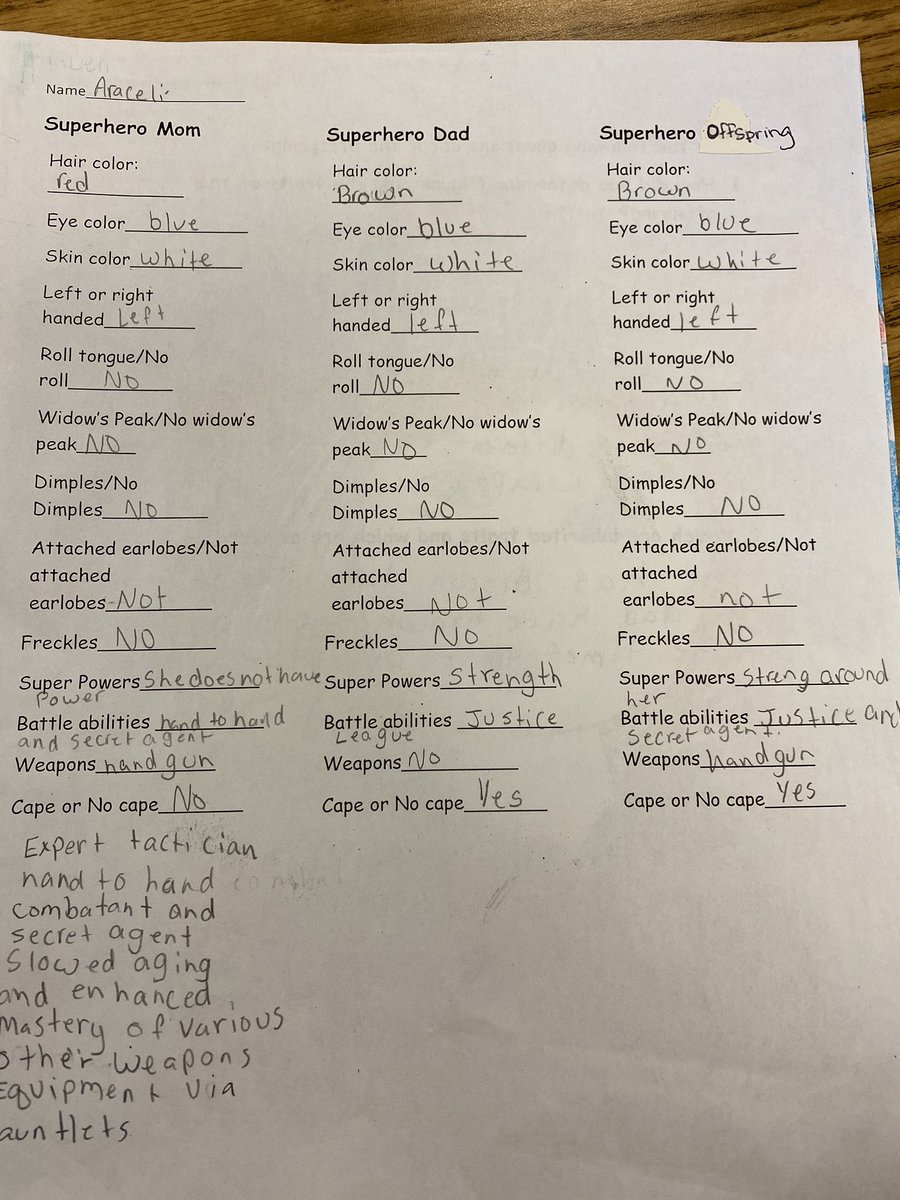 Name Araceli
Superhero Mom
Hair color:
red
Eye color blue
Skin color white
Left or right
handed Left
Roll tongue/No
roll NO
Widow's Peak/No widow's
peak NO
Dimples/No
Dimples NO
Attached earlobes/Not
attached
earlobes Not
Freckles NO
Super Powers She does not have
Power
Battle abilities hand to hand
and secret agent
Weapons hand gun
Cape or No cape No
Expert tactician
hand to hand
combatant and
secret agent
Slowed aging
and enhanced,
Mastery of various
other weapons
Equipment via
auntlets
Superhero Dad
Hair color:
Brown
Eye color blue
Skin color white
Left or right
handed left
Roll tongue/No
roll NO
Widow's Peak/No widow's
peak NO
Dimples/No
Dimples NO
Attached earlobes/Not
attached
earlobes Not
Freckles NO
Super Powers Strength
Battle abilities Justice
League
Weapons NO
Cape or No cape Yes
Superhero Offspring
Hair color:
Brown
Eye color blue
Skin color white
Left or right
handed left
Roll tongue/No
roll NO
Widow's Peak/No widow's
peak NO
Dimples/No
Dimples NO
Attached earlobes/Not
attached
earlobes not
Freckles NO
Super Powers Streng around
her
Battle abilities Justice and
Secret agent.
Weapons hand gun
Cape or No cape Yes